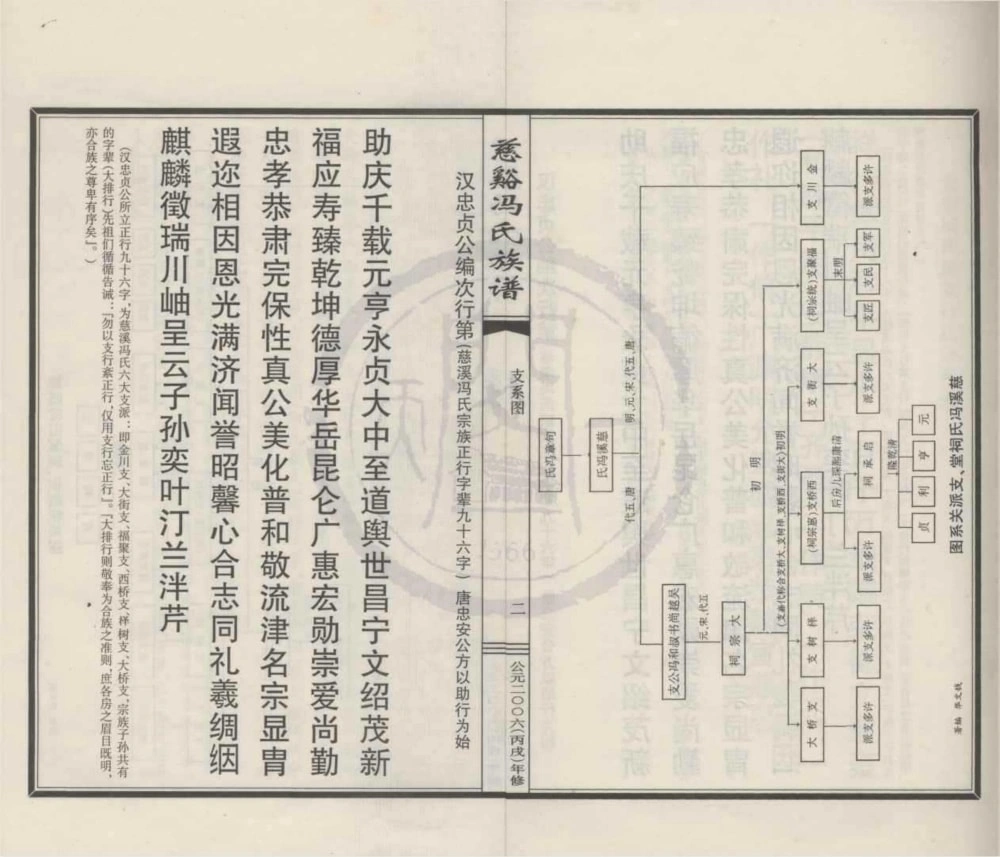 慈溪冯氏祠堂、支派关系图
句章冯氏
慈溪冯氏
唐、五代
唐、五代、宋、元、明
吴越尚书叔和冯公支
五代、宋、元
大宗祠
明初
明初(大街支、西桥支、樟树支、大桥支合称代嘉支)
金川支
福聚支(统宗祠)
大街支
西桥支(惠宗祠)
樟树支
大桥支
明末
军支
民支
匠支
许多支派
许多支派
启承祠
许多支派
许多支派
许多支派
清乾隆
元
亨
利
贞
慈谿冯氏族谱
支系图
二
公元二〇〇六(丙戌)年修
汉忠贞公编次行第(慈溪冯氏宗族正行字辈九十六字)唐忠安公方以助行为始
助庆千载元亨永贞大中至道舆世昌宁文绍茂新
福应寿臻乾坤德厚华岳昆仑广惠宏勋崇爱尚勤
忠孝恭肃完保性真公美化普和敬流津名宗显胄
遐迩相因恩光满济闻誉昭馨心合志同礼羲绸缊
麒麟徵瑞川岫呈云子孙奕叶汀兰泮芹
(汉忠贞公所立正行九十六字,为慈溪冯氏六大支派:即金川支、大街支、福聚支、西桥支、样树支、大桥支,宗族子孙共有
的字辈(大排行)先祖们循循告诫:「勿以支行紊正行,仅用支行忘正行。」「大排行则敬奉为合族之准则,庶各房之眉目既明,
亦合族之尊卑有序矣」。)